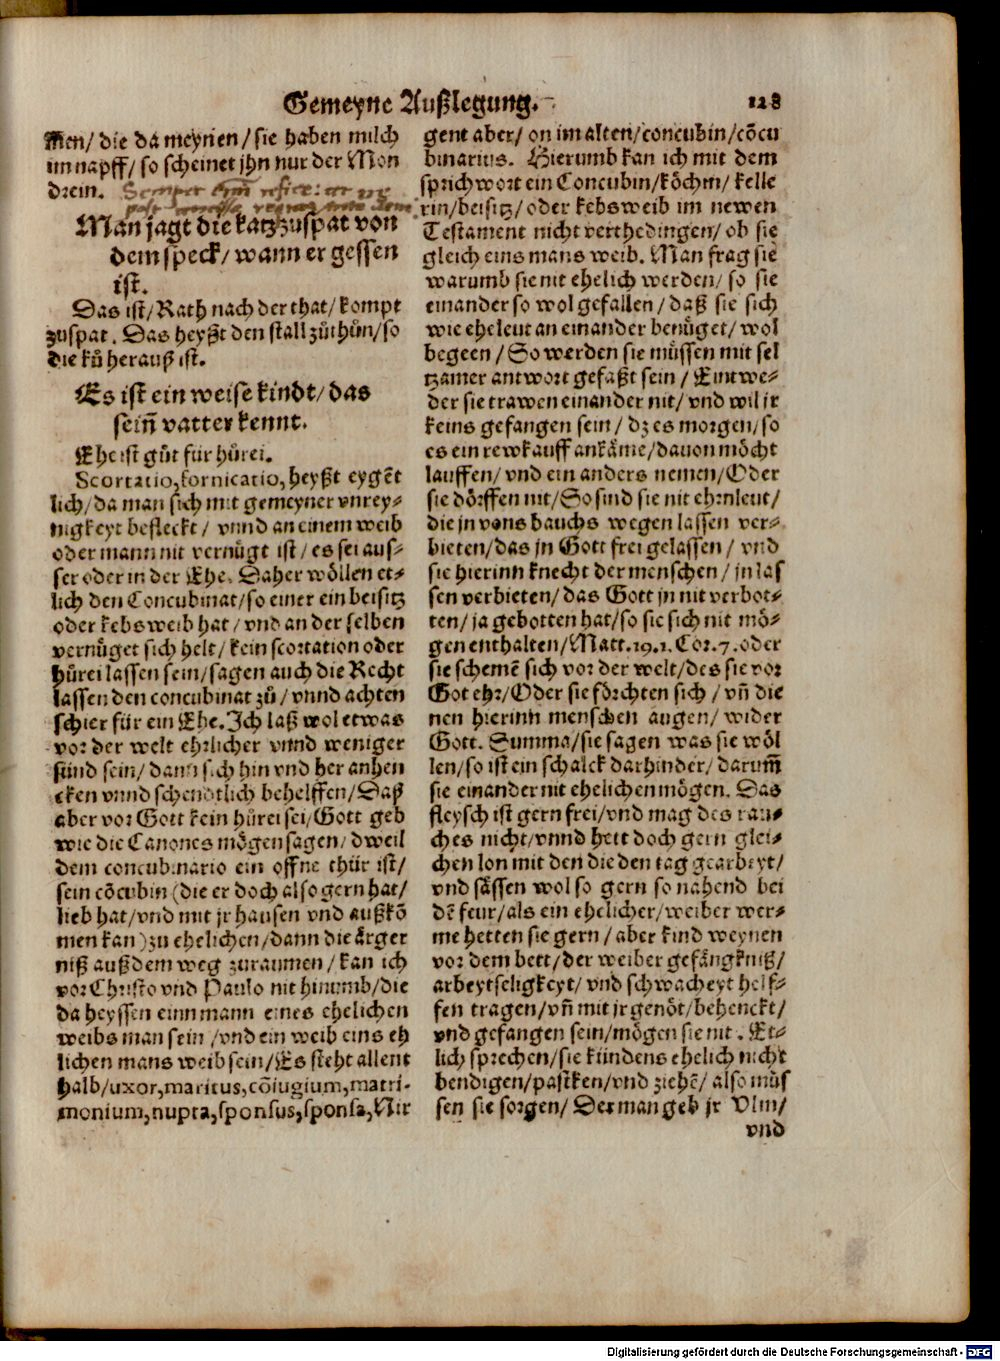 Gemeyne Außlegung.
128
Men/ die da meynen/ sie haben milch
im napff/ so scheinet jhn nur der Mon
drein.
Man jagt die katz zuspat von
dem speck/ wann er gessen
ist.
Das ist/ Rath nach der that/ kompt
zuspat. Das heyßt den stall zůthůn/ so
die ků herauß ist.
Es ist ein weise kindt/ das
sein̄ vatter kennt.
Ehe ist gůt für hůrei.
Scortatio, fornicatio, heyßt eygẽt
lich/ da man sich mit gemeyner vnrey-
nigkeyt befleckt/ vnnd an einem weib
oder mann nit vernůgt ist/ es sei aus-
ser oder in der Ehe. Daher wöllen et-
lich den Concubinat/ so einer ein beisitz
oder kebsweib hat/ vnd an der selben
vernůget sich helt/ kein scortation oder
hůrei lassen sein/ sagen auch die Recht
lassen den concubinat zů/ vnnd achten
schier für ein Ehe. Ich laß wol etwas
vor der welt ehrlicher vnnd weniger
sünd sein/ dann sich hin vnd her anhen
cken vnnd schendtlich behelffen/ Daß
aber vor Gott kein hůrei sei/ Gott geb
wie die Canones mögen sagen/ dweil
dem concubinario ein offne thür ist/
sein cõcubin (die er doch also gern hat/
lieb hat/ vnd mit jr hausen vnd außkõ
men kan) zu ehelichen/ dann die ärger
niß auß dem weg zuraumen/ kan ich
vor Christo vnd Paulo nit hinumb/ die
da heyssen einn mann eines ehelichen
weibs man sein/ vnd ein weib eins eh
lichen mans weib sein/ Es steht allent
halb/ uxor, maritus, cõiugium, matri-
monium, nupta, sponsus, sponsa, Nir
gent aber/ on im alten/ concubin/ cõcu
binarius. Hierumb kan ich mit dem
sprichwort ein Concubin/ köchin/ kelle
rin/ beisitz/ oder kebsweib im newen
Testament nicht verthedingen/ ob sie
gleich eins mans weib. Man frag sie
warumb sie nit ehelich werden/ so sie
einander so wol gefallen/ daß sie sich
wie eheleut an einander benůget/ wol
begeen/ So werden sie můssen mit sel
tzamer antwort gefaßt sein/ Eintwe-
der sie trawen einander nit/ vnd wil jr
keins gefangen sein/ dz es morgen/ so
es ein rewkauff ankäme/ dauon möcht
lauffen/ vnd ein anders nemen/ Oder
sie dörffen nit/ So sind sie nit ehrnleut/
die jn vons bauchs wegen lassen ver-
bieten/ das jn Gott frei gelassen/ vnd
sie hierinn knecht der menschen/ jn las
sen verbieten/ das Gott jn nit verbot-
ten/ ja gebotten hat/ so sie sich nit mö-
gen enthalten/ Matt. 19. 1. Cor. 7. oder
sie schemẽ sich vor der welt/ des sie vor
Got ehr/ Oder sie förchten sich/ vñ die
nen hierinn menschen augen/ wider
Gott. Summa/ sie sagen was sie wöl
len/ so ist ein schalck darhinder/ darum̃
sie einander nit ehelichen mögen. Das
fleysch ist gern frei/ vnd mag des rau-
ches nicht/ vnnd hett doch gern glei-
chen lon mit den die den tag gearbeyt/
vnd sässen wol so gern so nahend bei
dẽ feur/ als ein ehelicher/ weiber wer-
me hetten sie gern/ aber kind weynen
vor dem bett/ der weiber gefängkniß/
arbeytseligkeyt/ vnd schwacheyt helf-
fen tragen/ vñ mit jr genöt/ behenckt/
vnd gefangen sein/ mögen sie nit. Et-
lich sprechen/ sie kündens ehelich nicht
bendigen/ pastken/ vnd ziehẽ/ also můs
sen sie sorgen/ Der man geb jr Vlm/
vnd
Digitalisierung gefördert durch die Deutsche Forschungsgemeinschaft - DFG